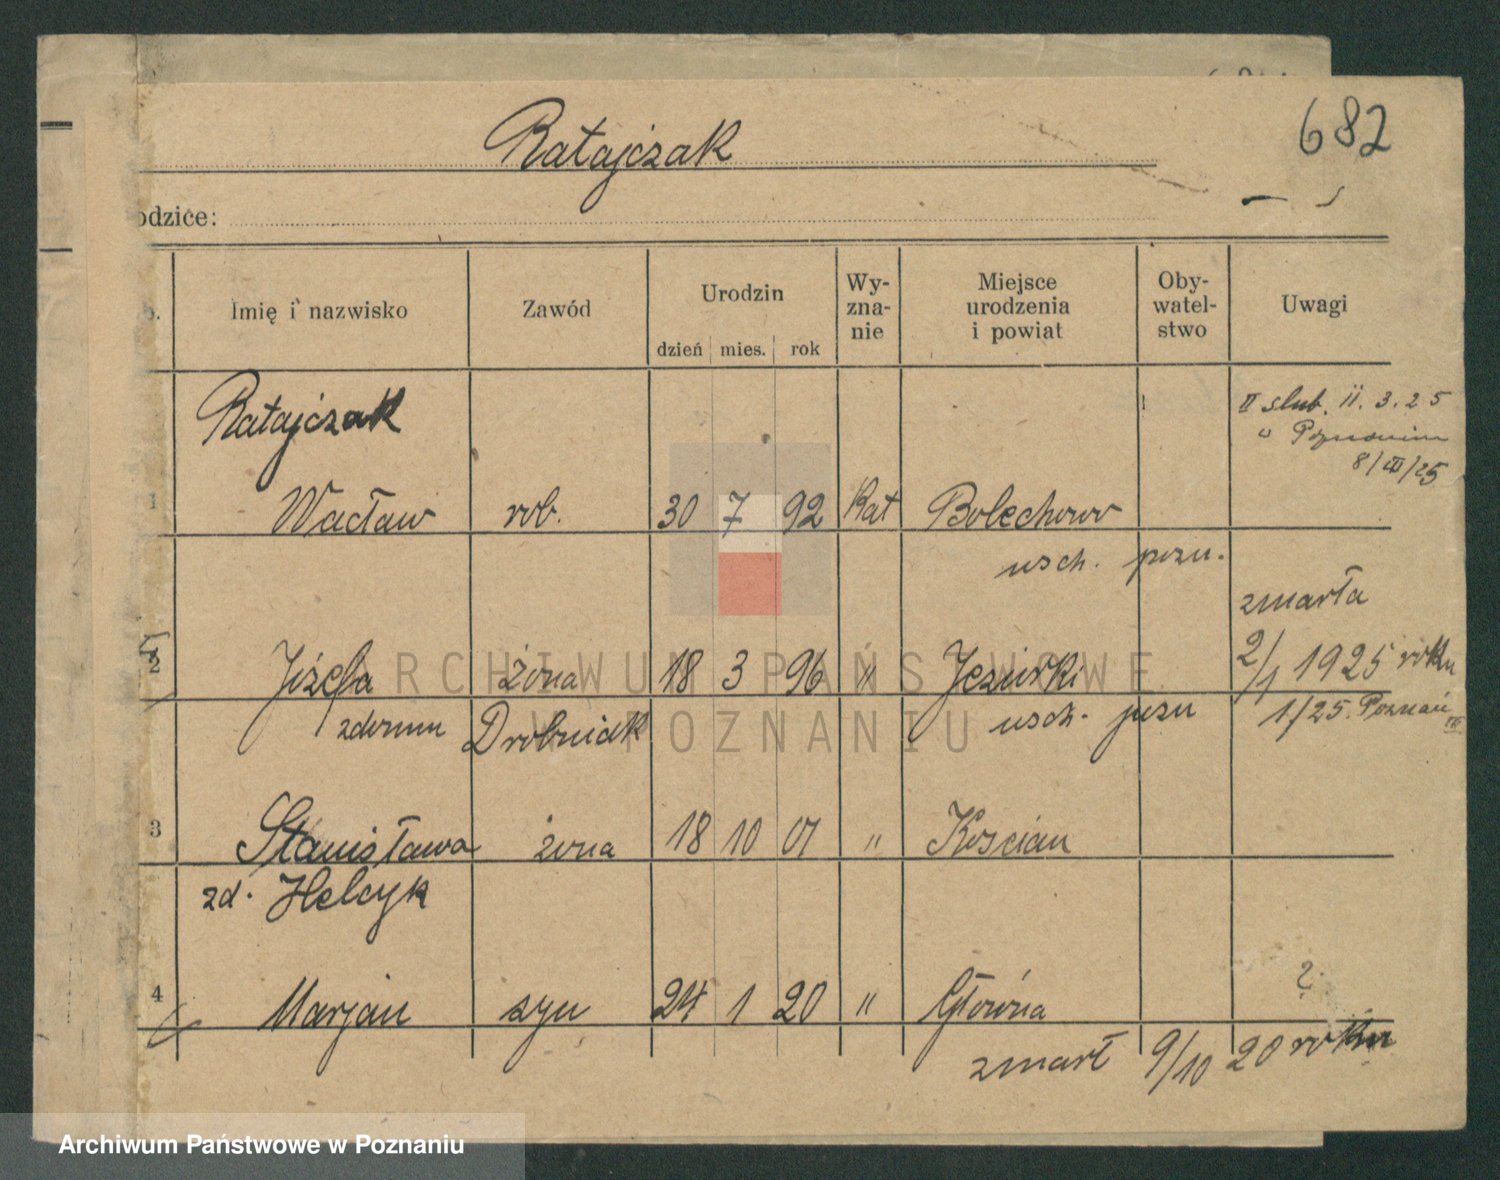 682
Ratajczak
odzice:
Imię i nazwisko
Zawód
Urodzin
dzień mies. rok
Wy-
zna-
nie
Miejsce
urodzenia
i powiat
Oby-
watel-
stwo
Uwagi
Ratajczak
II slub. 11. 3. 25
w Poznaniu
8/III/25
1 Wacław rob. 30 7 92 Kat Bolechowo
wsch. pozn.
zmarła
2 Józefa żona 18 3 96 " Jeziorki 2/1 1925 roku
zdomu Drobniak wsch. pozn 1/25. Poznań
3 Stanisława żona 18 10 01 " Kościan
zd. Helcyk
?
4 Marjan syn 24 1 20 " Główna
zmarł 9/10 20 roku
ARCHIWUM PAŃSTWOWE
W POZNANIU
Archiwum Państwowe w Poznaniu